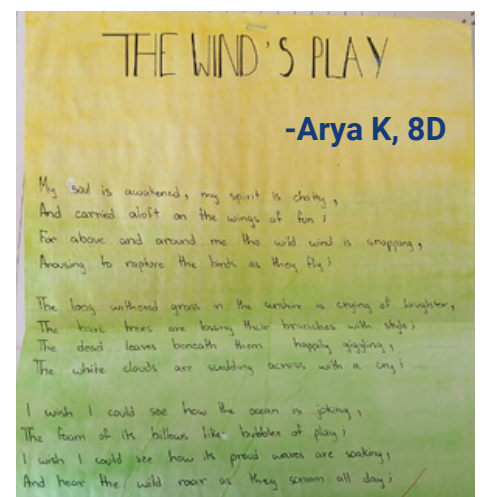 THE WIND'S PLAY
-Arya K, 8D
My soul is awakened, my spirit is chatty,
And carried aloft on the wings of fun;
For above and around me the wild wind is snapping,
Arousing to rapture the birds as they fly;
The long withered grass in the sunshine is crying of laughter,
The bare trees are tossing their branches with style;
The dead leaves beneath them happily giggling,
The white clouds are scudding across with a cry;
I wish I could see how the ocean is joking,
The foam of its billows like bubbles of play;
I wish I could see how its proud waves are soaking,
And hear the wild roar as they scream all day;